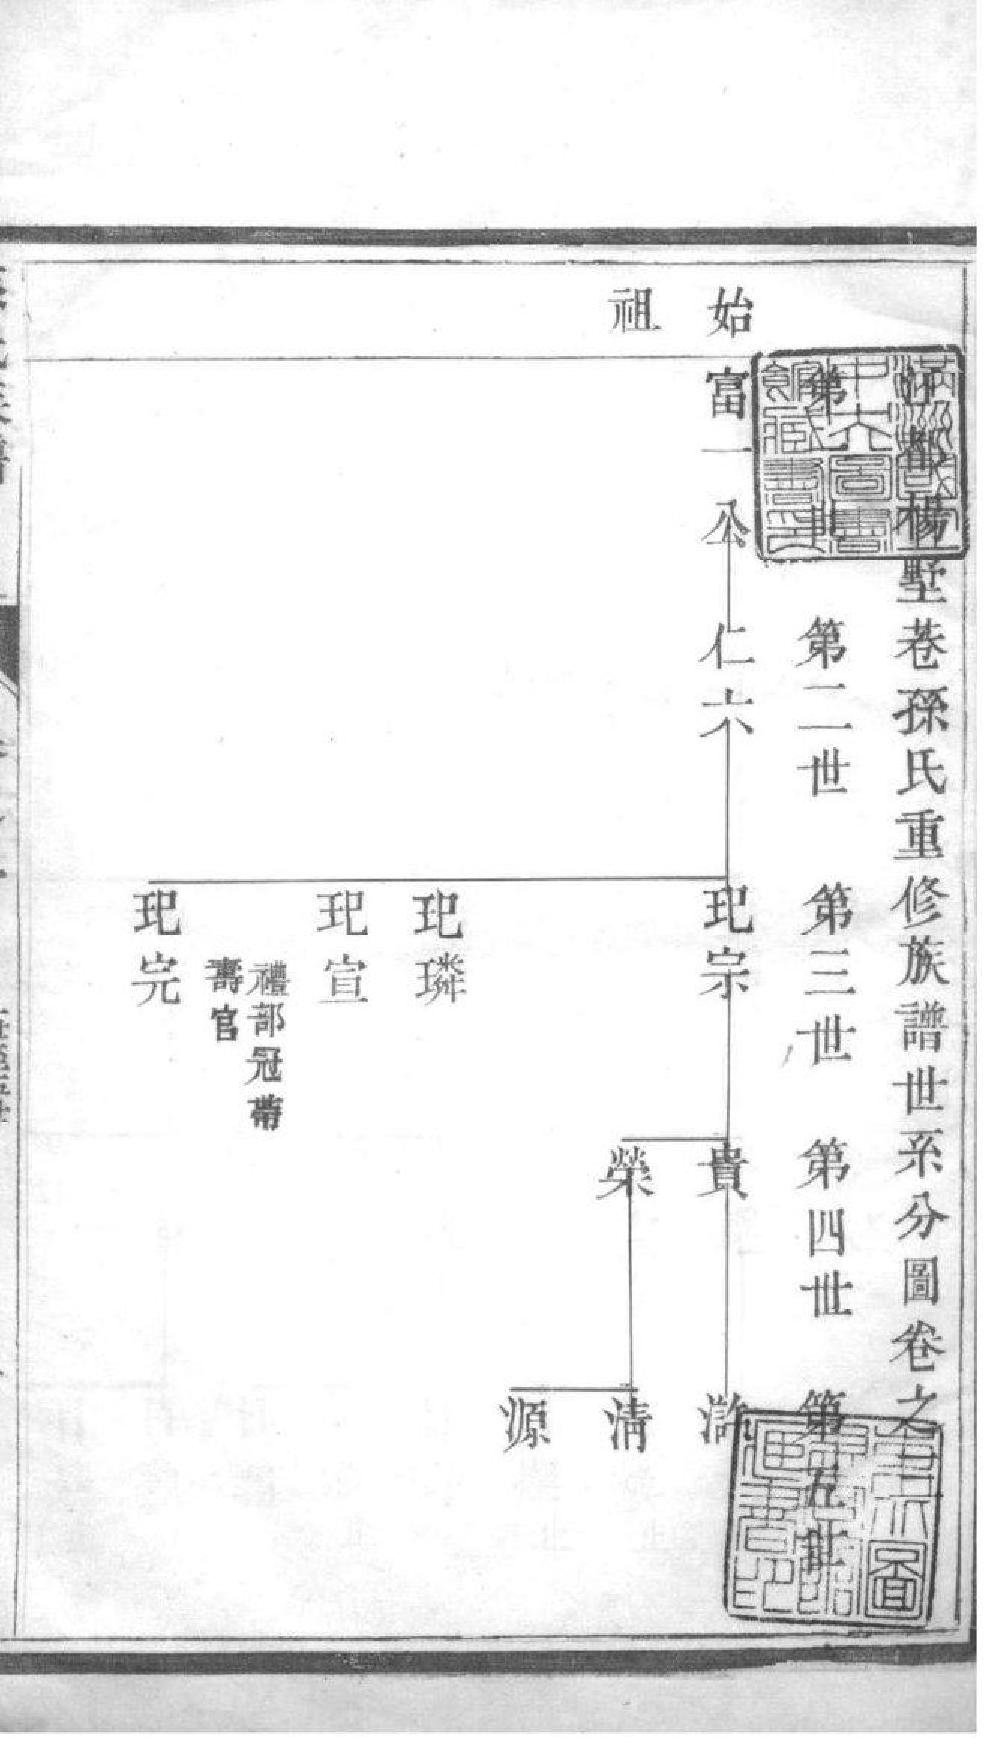 江都楊墅巷孫氏重修族譜世系分圖卷之
第一世 第二世 第三世 第四世 第五世
始祖
富一公
仁六
玘宗
玘璘
玘宣
禮部冠帶
壽官
玘完
貴
榮
澣
清
源